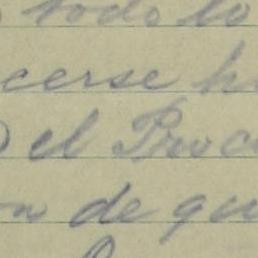 todo lo
cerse h
el Proc
on de qu